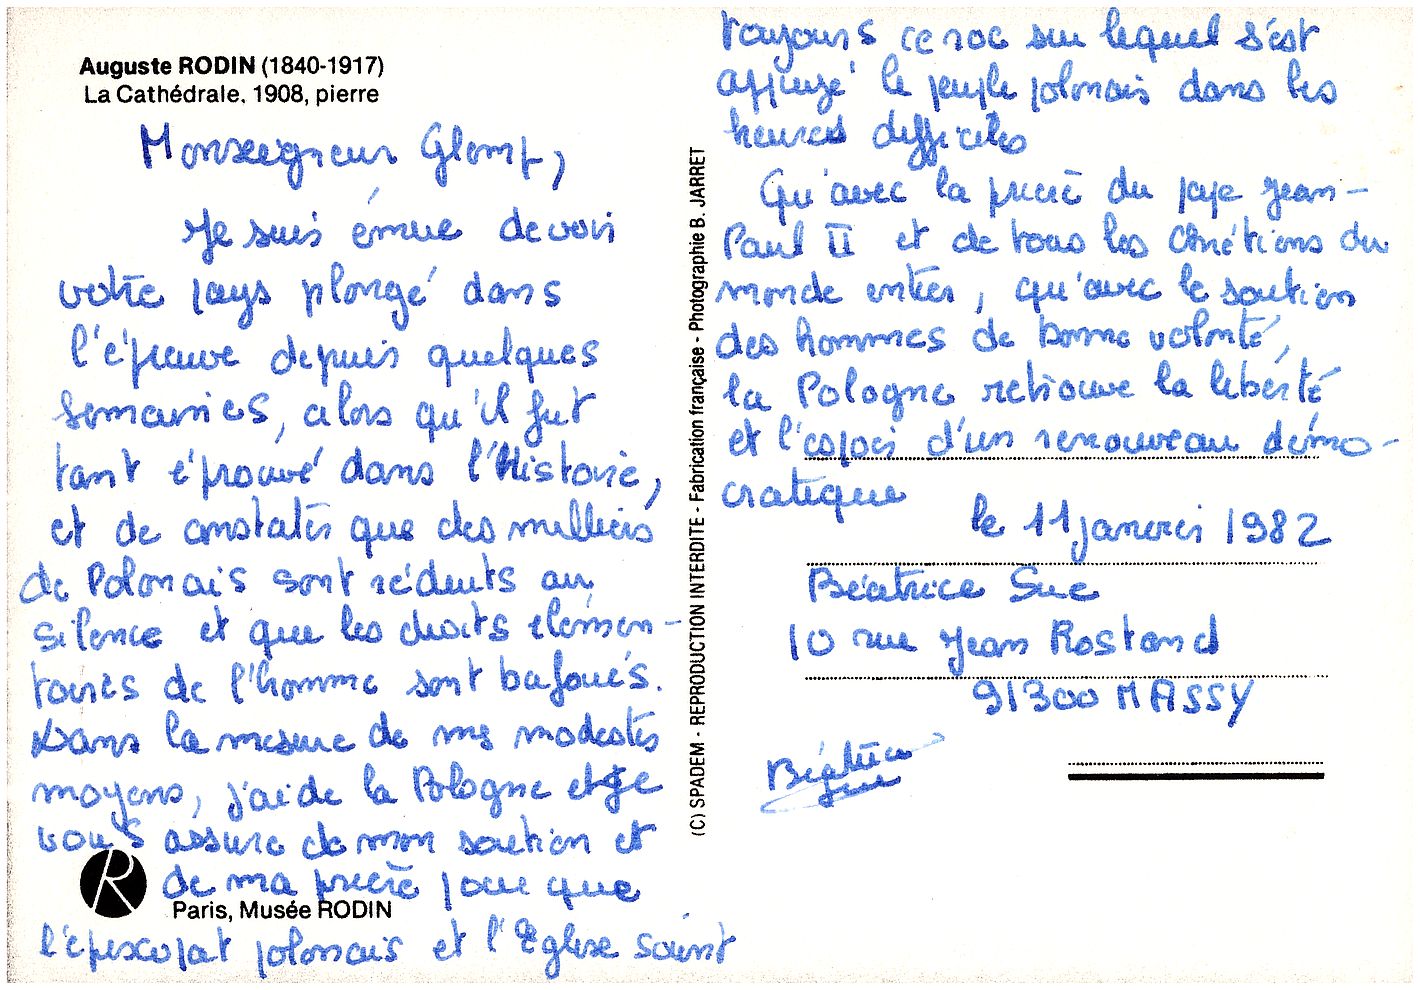 Auguste RODIN (1840-1917)
La Cathédrale, 1908, pierre
Monseigneur Glemp,
Je suis émue de voir
votre pays plongé dans
l'épreuve depuis quelques
semaines, alors qu'il fut
tant éprouvé dans l'Histoire,
et de constater que des milliers
de Polonais sont réduits au
silence et que les droits élémen-
taires de l'homme sont bafoués.
Dans la mesure de mes modestes
moyens, j'aide la Pologne et je
vous assure de mon soutien et
de ma prière pour que
l'épiscopat polonais et l'Eglise soient
R
Paris, Musée RODIN
(C) SPADEM - REPRODUCTION INTERDITE - Fabrication française - Photographie B. JARRET
toujours ce roc sur lequel s'est
appuyé le peuple polonais dans les
heures difficiles
Qu'avec la prière du pape Jean-
Paul II et de tous les chrétiens du
monde entier, qu'avec le soutien
des hommes de bonne volonté,
la Pologne retrouve la liberté
et l'espoir d'un renouveau démo-
cratique
le 11 janvier 1982
Béatrice Sue
10 rue Jean Rostand
91300 MASSY
Béatrice
Sue